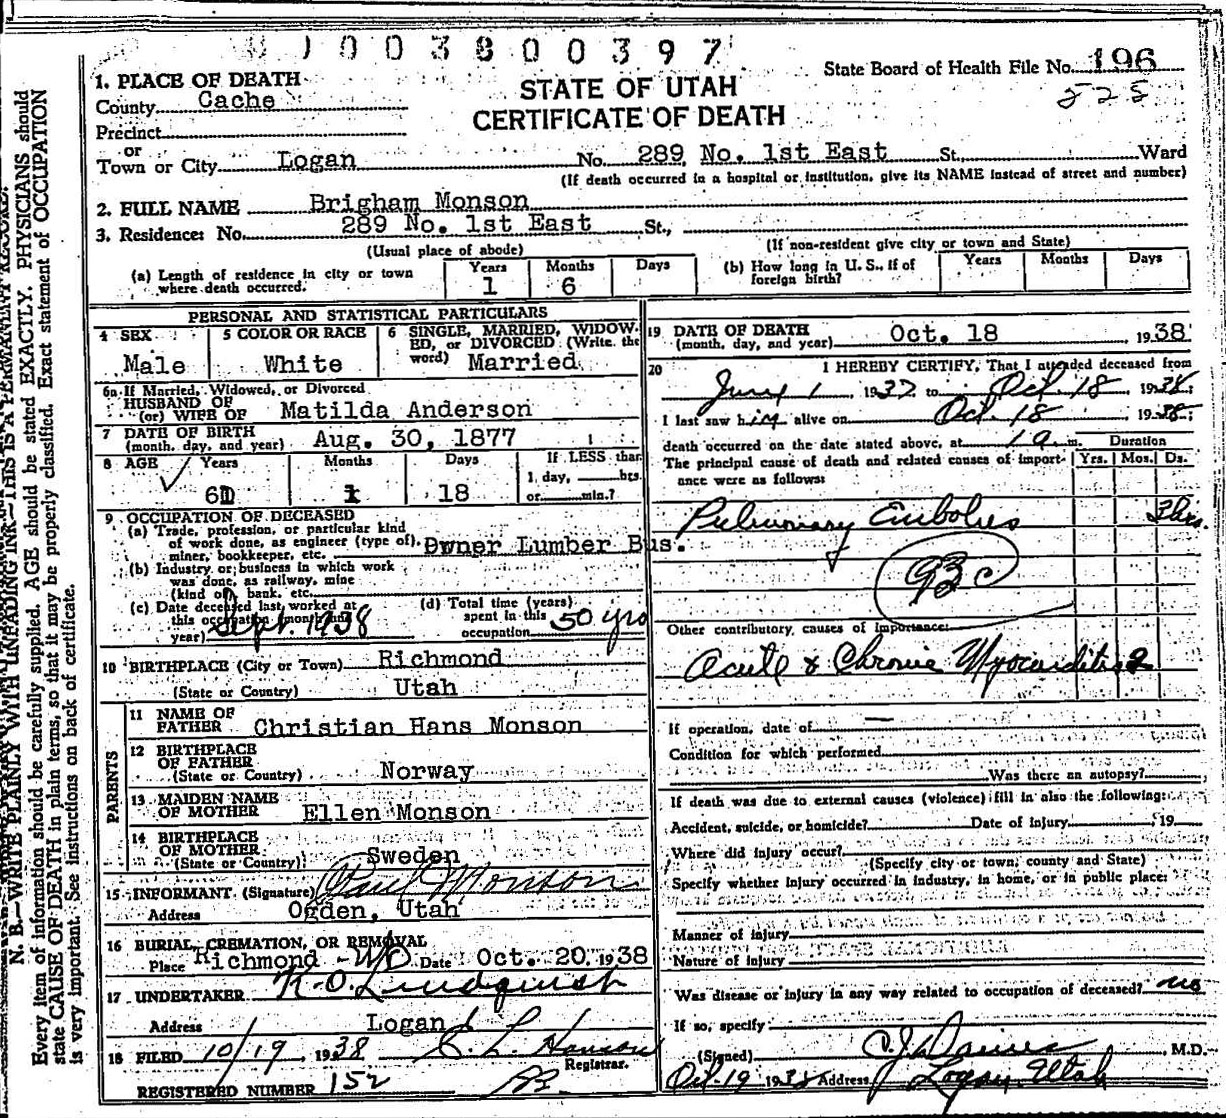 003800397
State Board of Health File No. 196
525
STATE OF UTAH
CERTIFICATE OF DEATH
1. PLACE OF DEATH
County Cache
Precinct
or
Town or City Logan No. 289 No. 1st East St. Ward
(If death occurred in a hospital or institution, give its NAME instead of street and number)
2. FULL NAME Brigham Monson
3. Residence: No. 289 No. 1st East St.,
(Usual place of abode) (If non-resident give city or town and State)
(a) Length of residence in city or town where death occurred. Years 1 Months 6 Days
(b) How long in U. S., if of foreign birth? Years Months Days
PERSONAL AND STATISTICAL PARTICULARS
4 SEX Male
5 COLOR OR RACE White
6 SINGLE, MARRIED, WIDOWED, or DIVORCED (Write the word) Married
6a If Married, Widowed, or Divorced
HUSBAND OF
(or) WIFE OF Matilda Anderson
7 DATE OF BIRTH
(month, day, and year) Aug. 30, 1877
8 AGE Years 61 Months 1 Days 18
If LESS than
1 day, hrs.
or min.?
9 OCCUPATION OF DECEASED
(a) Trade, profession, or particular kind
of work done, as engineer (type of),
miner, bookkeeper, etc. Owner Lumber Bus.
(b) Industry or business in which work
was done, as railway, mine
(kind of) bank, etc.
(c) Date deceased last worked at
this occupation (month and
year) Sept. 1938
(d) Total time (years)
spent in this
occupation 50 yrs
10 BIRTHPLACE (City or Town) Richmond
(State or Country) Utah
PARENTS
11 NAME OF
FATHER Christian Hans Monson
12 BIRTHPLACE
OF FATHER
(State or Country) Norway
13 MAIDEN NAME
OF MOTHER Ellen Monson
14 BIRTHPLACE
OF MOTHER
(State or Country) Sweden
15 INFORMANT. (Signature) Paul Monson
Address Ogden, Utah
16 BURIAL, CREMATION, OR REMOVAL
Place Richmond Date Oct. 20, 1938
17 UNDERTAKER K. O. Lindquist
Address Logan
18 FILED 10/19, 1938
Registrar.
REGISTERED NUMBER 152
19 DATE OF DEATH
(month, day, and year) Oct. 18, 1938
20 I HEREBY CERTIFY, That I attended deceased from
June 1, 1937 to Oct. 18, 1938;
I last saw him alive on Oct. 18 1938;
death occurred on the date stated above, at 1 a. m. Duration
The principal cause of death and related causes of importance were as follows: Yrs. Mos. Ds.
Pulmonary Embolus 3 hrs.
93c
Other contributory causes of importance:
Acute & Chronic Myocarditis 2
If operation, date of —
Condition for which performed
Was there an autopsy?
If death was due to external causes (violence) fill in also the following:
Accident, suicide, or homicide? Date of injury 19
Where did injury occur?
(Specify city or town, county and State)
Specify whether injury occurred in industry, in home, or in public place:
Manner of injury
Nature of injury
Was disease or injury in any way related to occupation of deceased? no
If so, specify
(Signed) M.D.
Oct-19 1938 Address Logan, Utah
N. B.—WRITE PLAINLY WITH UNFADING INK—THIS IS A PERMANENT RECORD.
Every item of information should be carefully supplied. AGE should be stated EXACTLY. PHYSICIANS should
state CAUSE OF DEATH in plain terms, so that it may be properly classified. Exact statement of OCCUPATION
is very important. See instructions on back of certificate.